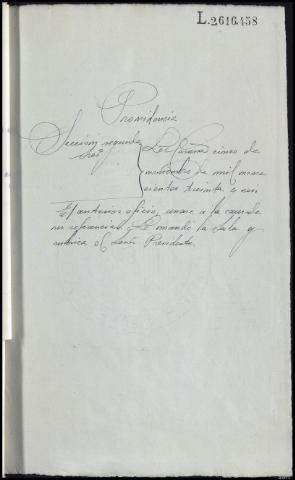 L.2616458
Providencia
Sección segunda
La Coruña cinco de
noviembre de mil nove
cientos treinta y
El anterior oficio, unase a la causa de
su referencia. Lo mandó la Sala y
rubrica el Señor Presidente.